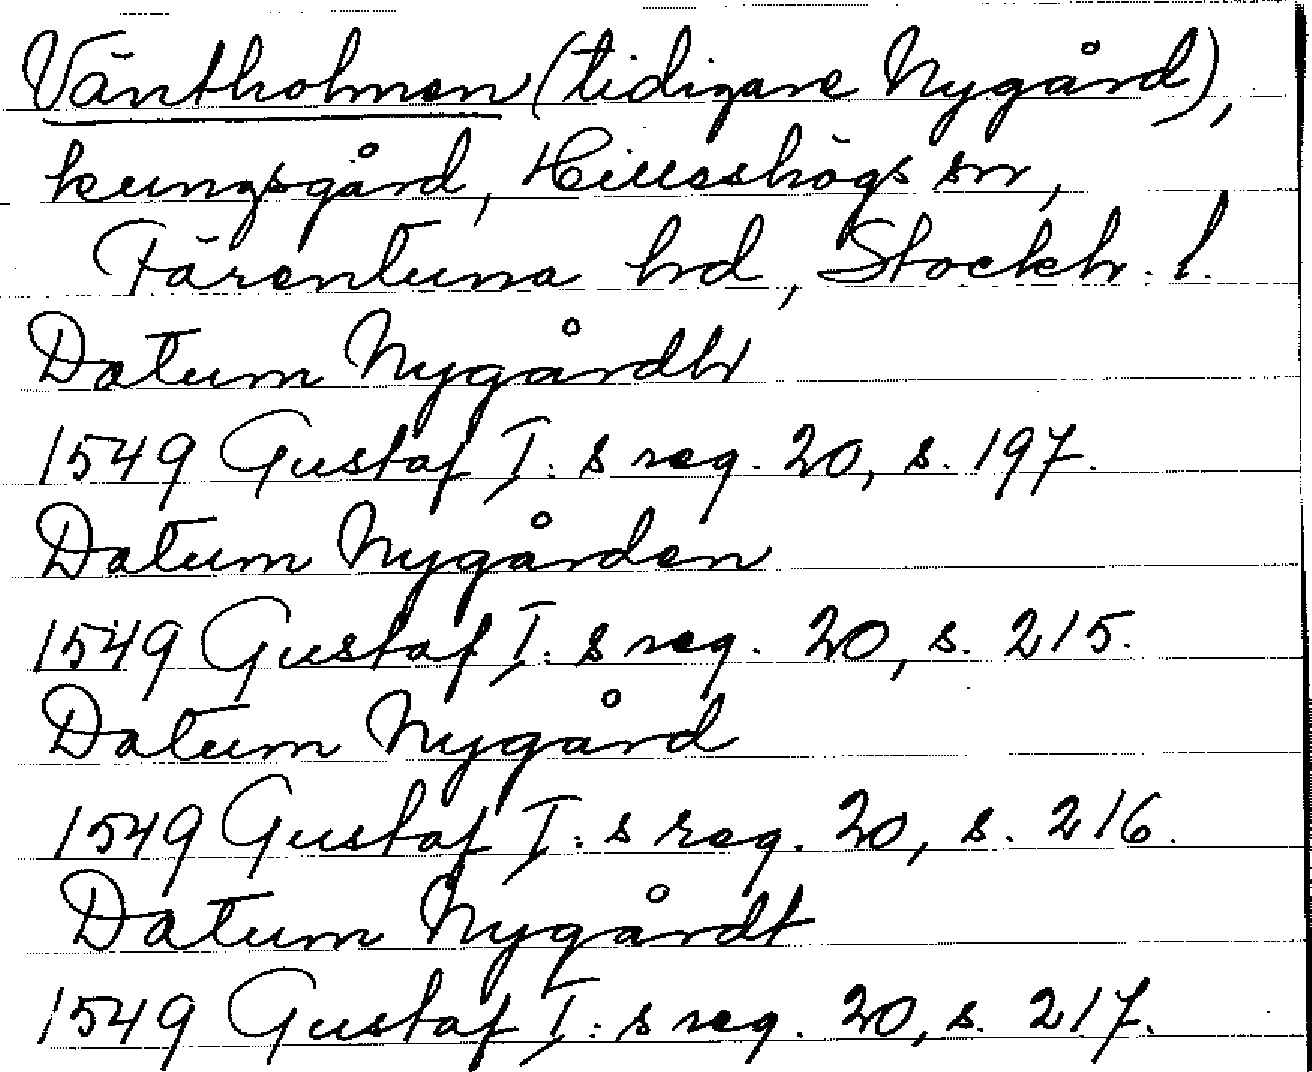 Väntholmen (tidigare Nygård),
kungsgård, Hilleshögs sn,
Färentuna hd, Stockh. l.
Datum Nygårdh
1549 Gustaf I: s reg. 20, s. 197.
Datum Nygården
1549 Gustaf I: s reg. 20, s. 215.
Datum Nygård
1549 Gustaf I: s reg. 20, s. 216.
Datum Nygårdt
1549 Gustaf I: s reg. 20, s. 217.